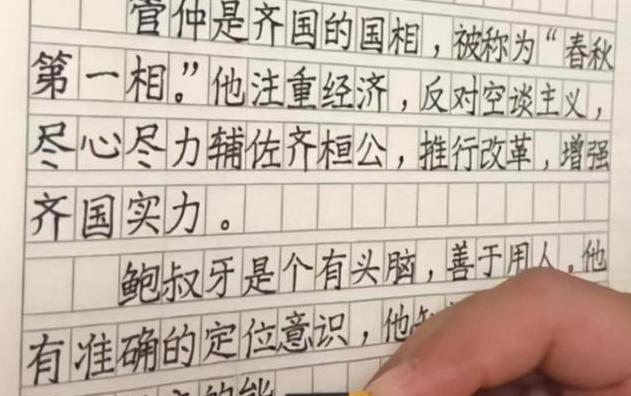 管仲是齐国的国相，被称为“春秋
第一相。”他注重经济，反对空谈主义，
尽心尽力辅佐齐桓公，推行改革，增强
齐国实力。
鲍叔牙是个有头脑，善于用人。他
有准确的定位意识，他
的能